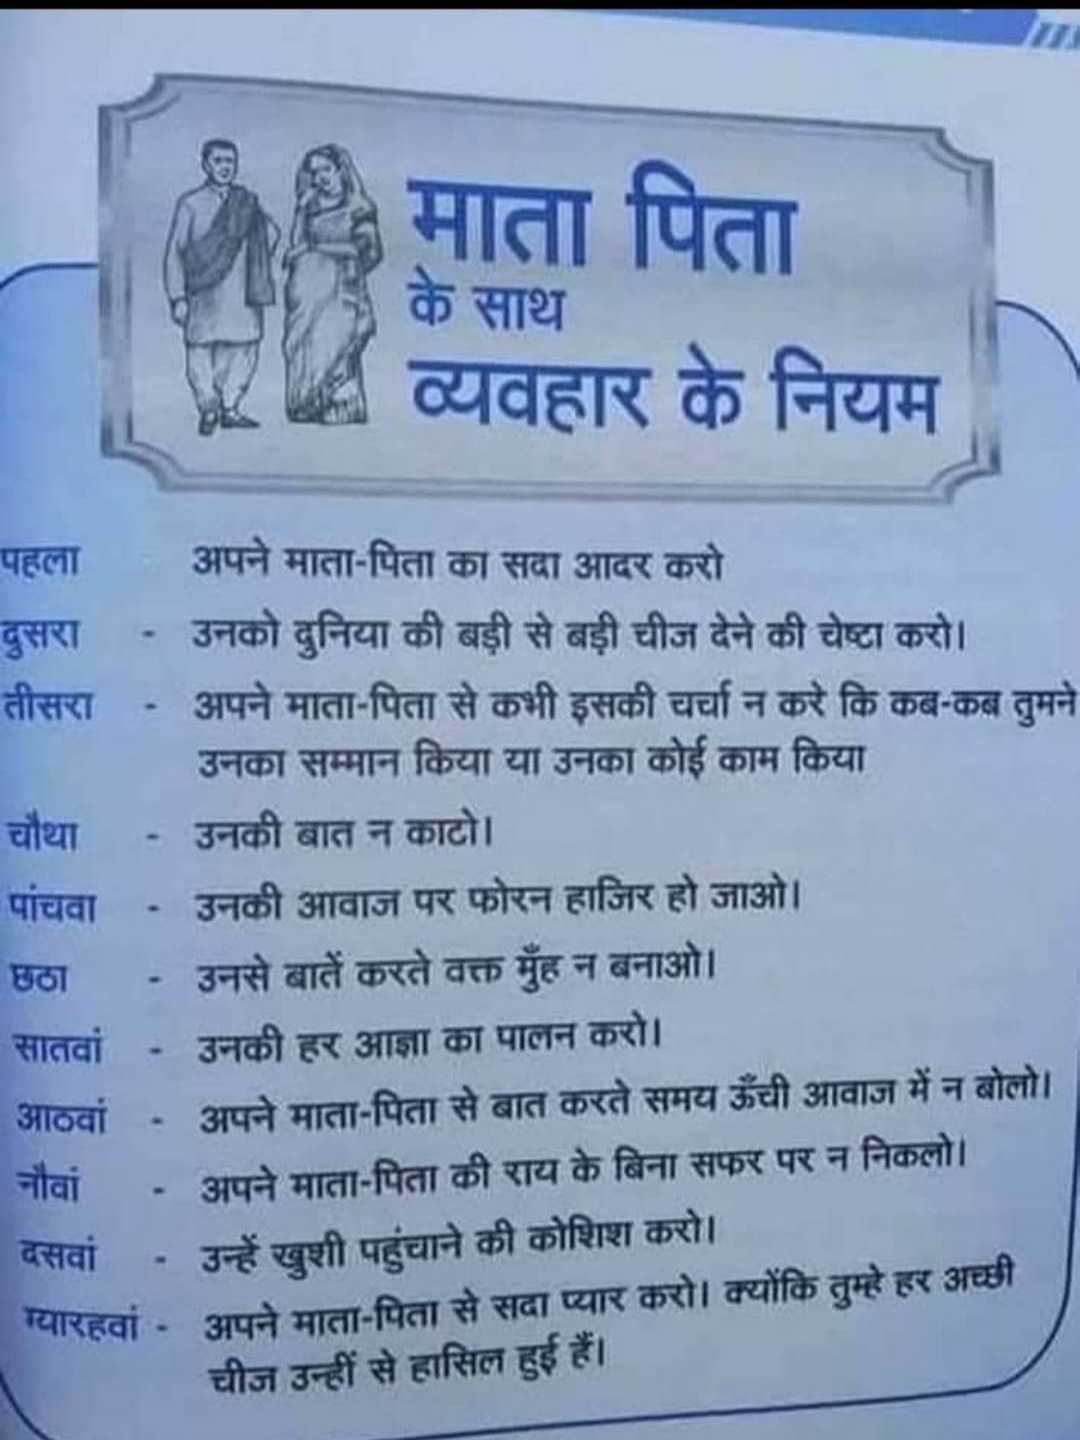 माता पिता
के साथ
व्यवहार के नियम
पहला अपने माता-पिता का सदा आदर करो
दुसरा - उनको दुनिया की बड़ी से बड़ी चीज देने की चेष्टा करो।
तीसरा - अपने माता-पिता से कभी इसकी चर्चा न करे कि कब-कब तुमने
उनका सम्मान किया या उनका कोई काम किया
चौथा - उनकी बात न काटो।
पांचवा - उनकी आवाज पर फोरन हाजिर हो जाओ।
छठा - उनसे बातें करते वक्त मुँह न बनाओ।
सातवां - उनकी हर आज्ञा का पालन करो।
आठवां - अपने माता-पिता से बात करते समय ऊँची आवाज में न बोलो।
नौवां - अपने माता-पिता की राय के बिना सफर पर न निकलो।
दसवां - उन्हें खुशी पहुंचाने की कोशिश करो।
ग्यारहवां - अपने माता-पिता से सदा प्यार करो। क्योंकि तुम्हे हर अच्छी
चीज उन्हीं से हासिल हुई हैं।